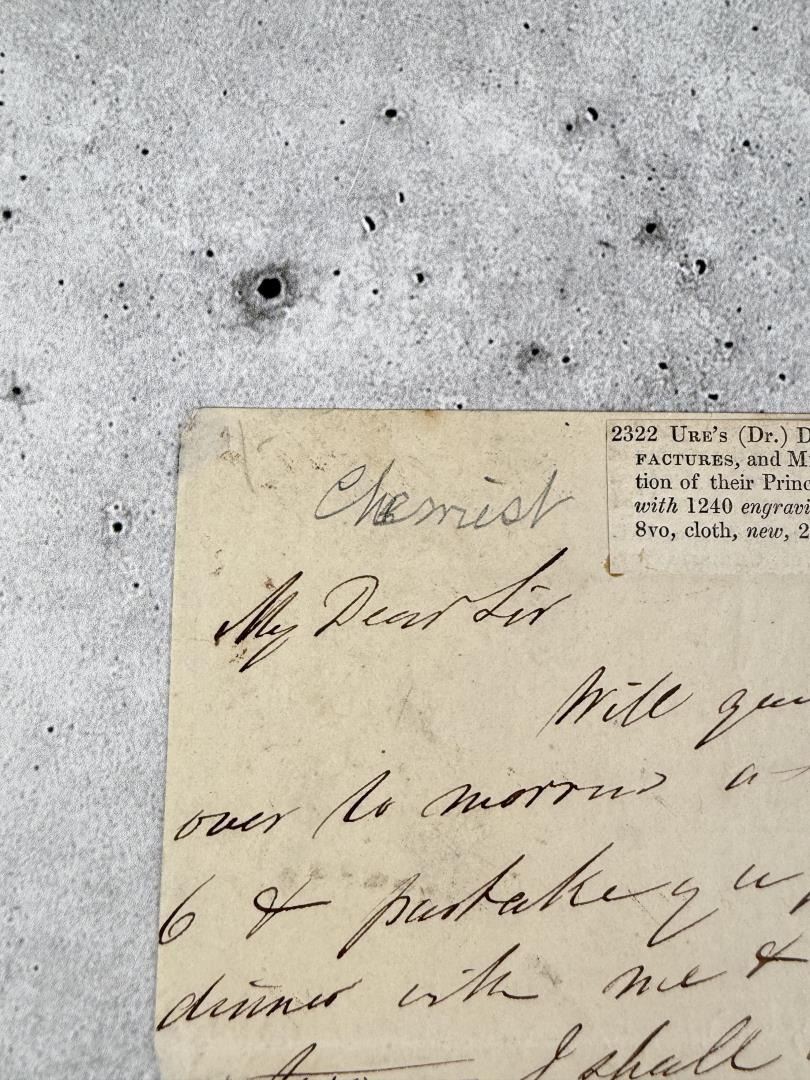 2322 URE'S (Dr.) D
FACTURES, and M
tion of their Princ
with 1240 engravi
8vo, cloth, new, 2
Chemist
My Dear Sir
Will
over to morrow
6 & partake
dinner with me &
I shall